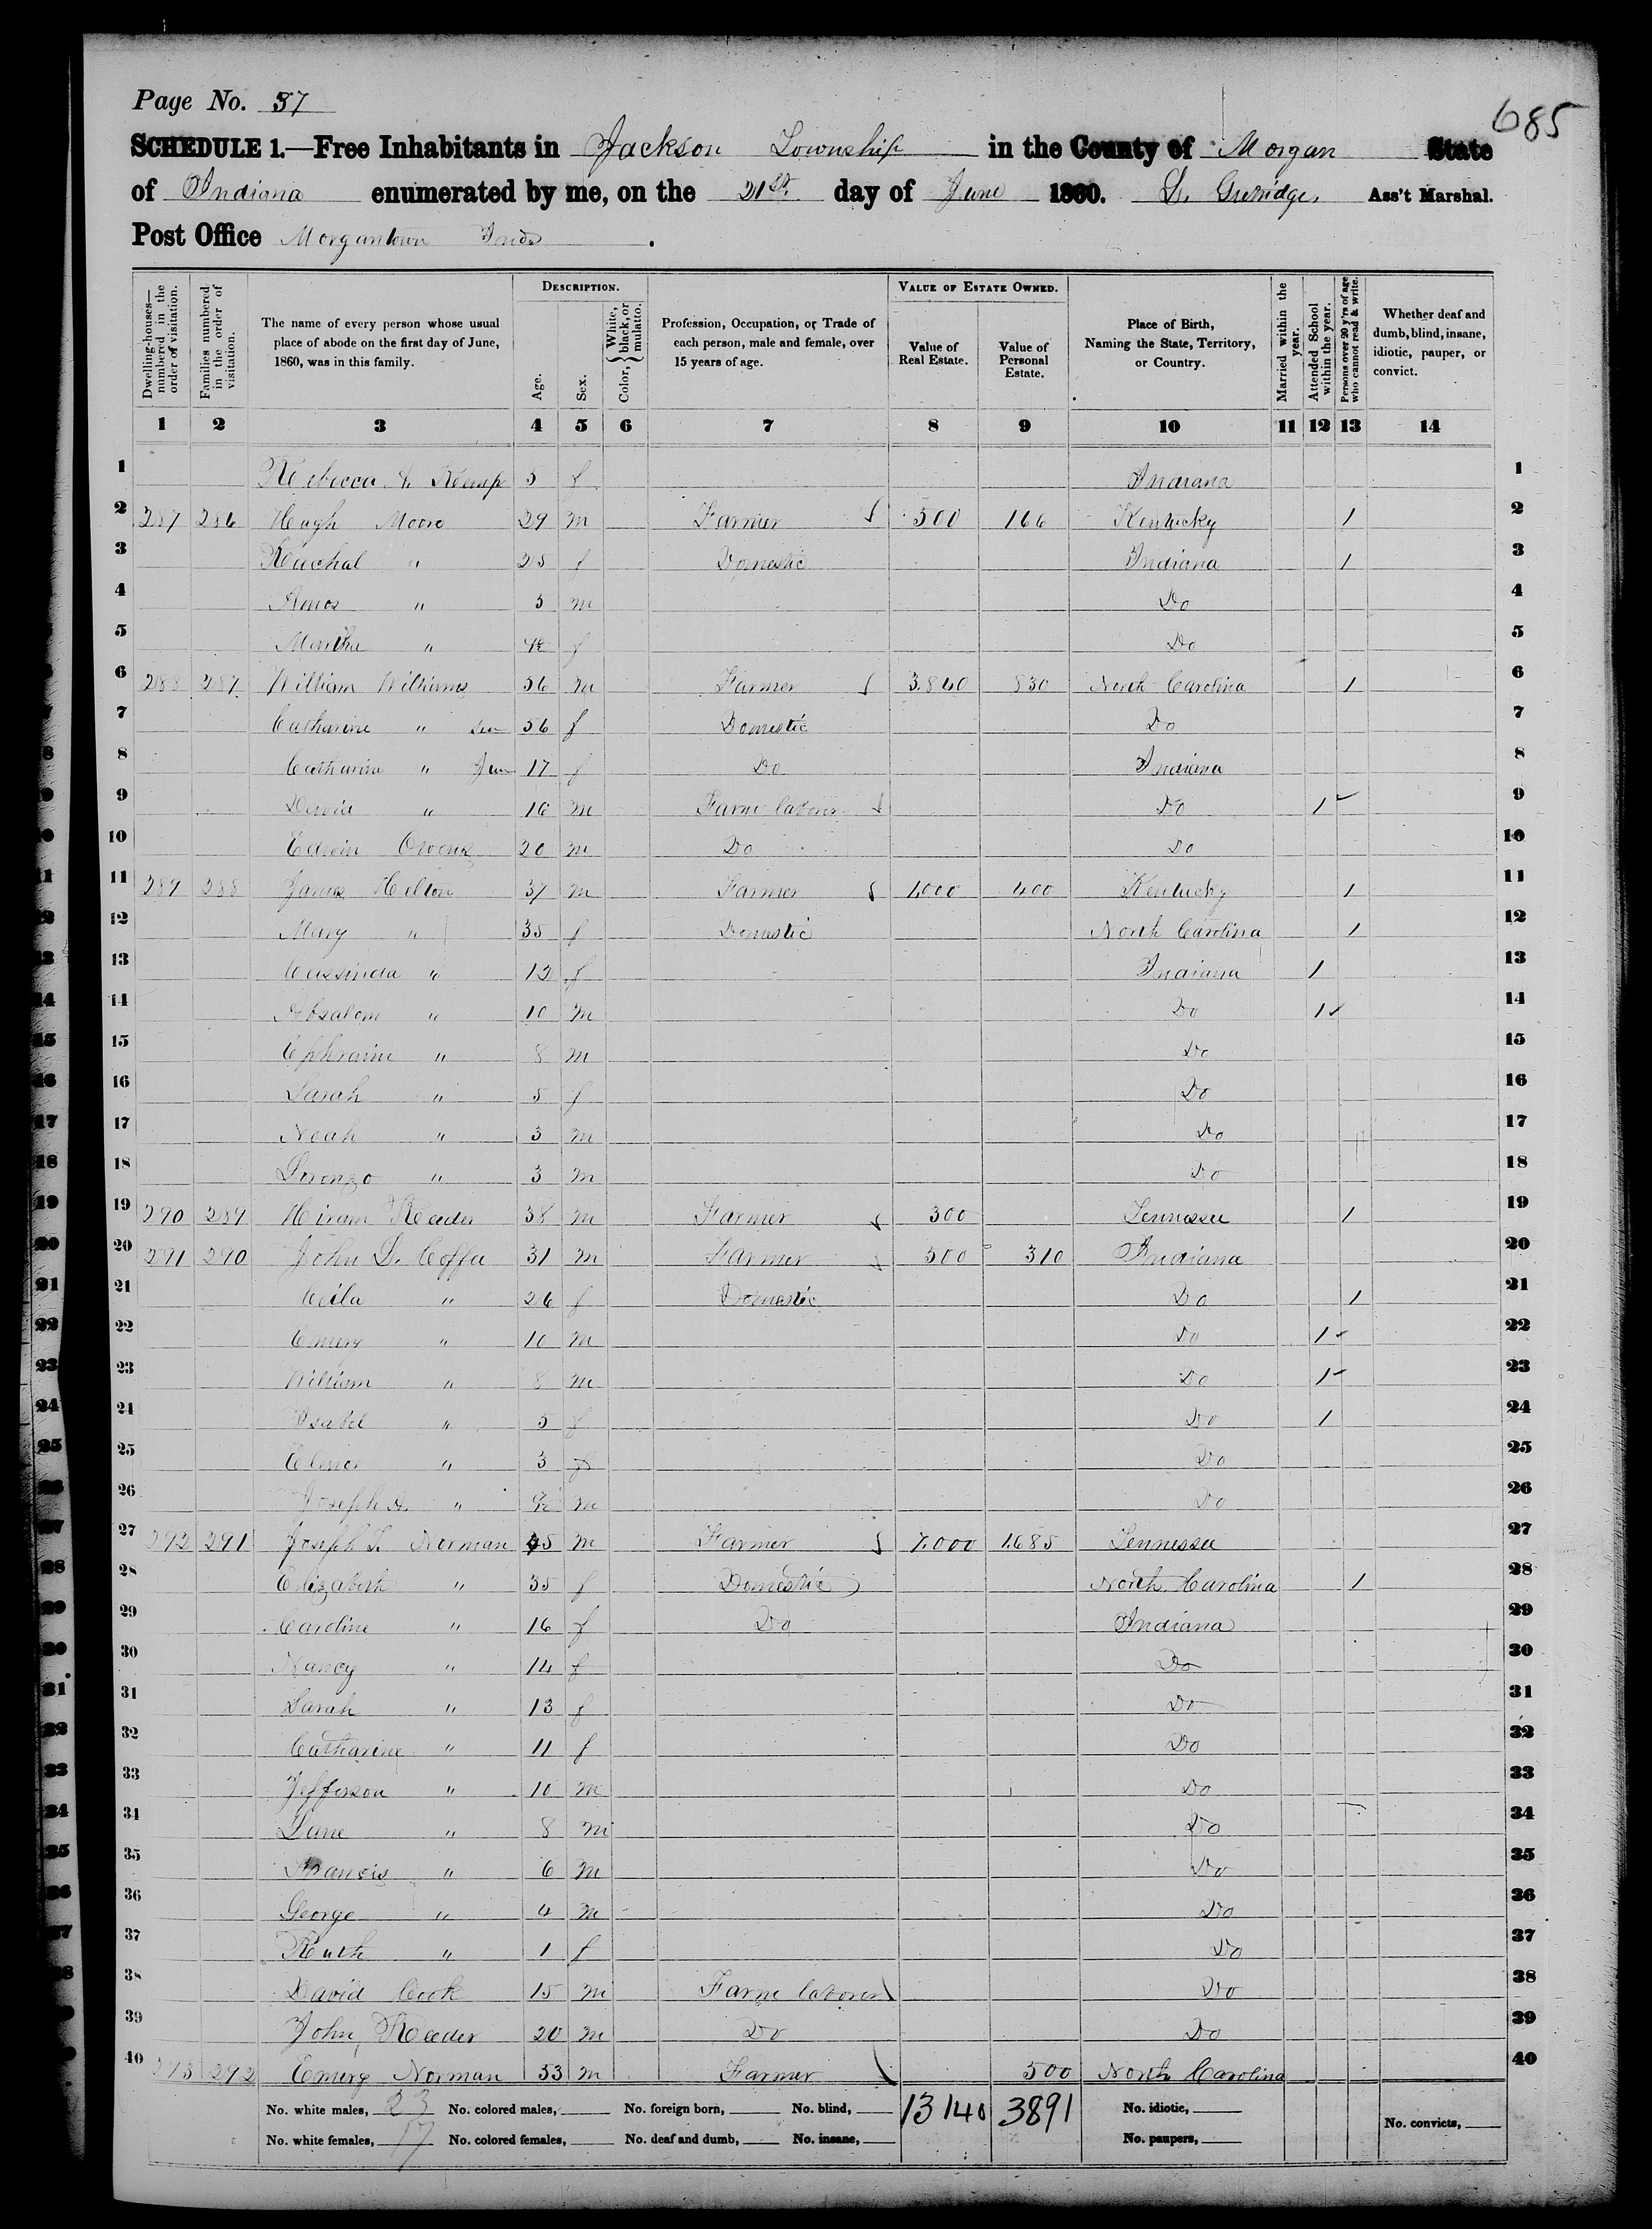 Page No. 37
685
SCHEDULE 1.—Free Inhabitants in Jackson Township in the County of Morgan State
of Indiana enumerated by me, on the 21st. day of June 1860. Ass't Marshal.
Post Office Morgantown Inda.
Dwelling-houses—numbered in the order of visitation.
Families numbered in the order of visitation.
The name of every person whose usual place of abode on the first day of June, 1860, was in this family.
DESCRIPTION.
Age.
Sex.
Color, { White, black, or mulatto.
Profession, Occupation, or Trade of each person, male and female, over 15 years of age.
VALUE OF ESTATE OWNED.
Value of Real Estate.
Value of Personal Estate.
Place of Birth, Naming the State, Territory, or Country.
Married within the year.
Attended School within the year.
Persons over 20 y'rs of age who cannot read & write.
Whether deaf and dumb, blind, insane, idiotic, pauper, or convict.
1 2 3 4 5 6 7 8 9 10 11 12 13 14
1 Rebecca A. Kemp 5 f Indiana 1
2 287 286 Hugh Moore 29 m Farmer 500 166 Kentucky 1 2
3 Rachal " 25 f Domestic Indiana 1 3
4 Amos " 3 m Do 4
5 Martha " f Do 5
6 288 287 William Williams 56 m Farmer 3.840 830 North Carolina 1 6
7 Catharine " Sen 56 f Domestic Do 7
8 Catharine " Jun 17 f Do Indiana 8
9 David " 16 m Farm laborer Do 1 9
10 Edwin Owens 20 m Do Do 10
11 289 288 James Helton 37 m Farmer 1,000 400 Kentucky 1 11
12 Mary " 35 f Domestic North Carolina 1 12
13 Cassinda " 12 f Indiana 1 13
14 Absalom " 10 m Do 1 14
15 Ephraim " 8 m Do 15
16 Sarah " 5 f Do 16
17 Noah " 3 m Do 17
18 Lorenzo " 3 m Do 18
19 290 289 Hiram Reeder 38 m Farmer 300 Tennessee 1 19
20 291 290 John S. Coffee 31 m Farmer 500 310 Indiana 20
21 Ceila " 26 f Domestic Do 1 21
22 Emery " 10 m Do 1 22
23 William " 8 m Do 1 23
24 Isabel " 5 f Do 1 24
25 Elinor " 3 f Do 25
26 Joseph A. " m Do 26
27 292 291 Joseph L. Norman 45 m Farmer 7.000 1.685 Tennessee 27
28 Elizabeth " 35 f Domestic North Carolina 1 28
29 Caroline " 16 f Do Indiana 29
30 Nancy " 14 f Do 30
31 Sarah " 13 f Do 31
32 Catharine " 11 f Do 32
33 Jefferson " 10 m Do 33
34 Lane " 8 m Do 34
35 Francis " 6 m Do 35
36 George " 4 m Do 36
37 Ruth " 1 f Do 37
38 David Cook 15 m Farm laborer Do 38
39 John Reeder 20 m Do Do 39
40 293 292 Emery Norman 33 m Farmer 500 North Carolina 40
No. white males, 23 No. colored males, No. foreign born, No. blind, 13140 3891 No. idiotic,
No. white females, 17 No. colored females, No. deaf and dumb, No. insane, No. paupers, No. convicts,